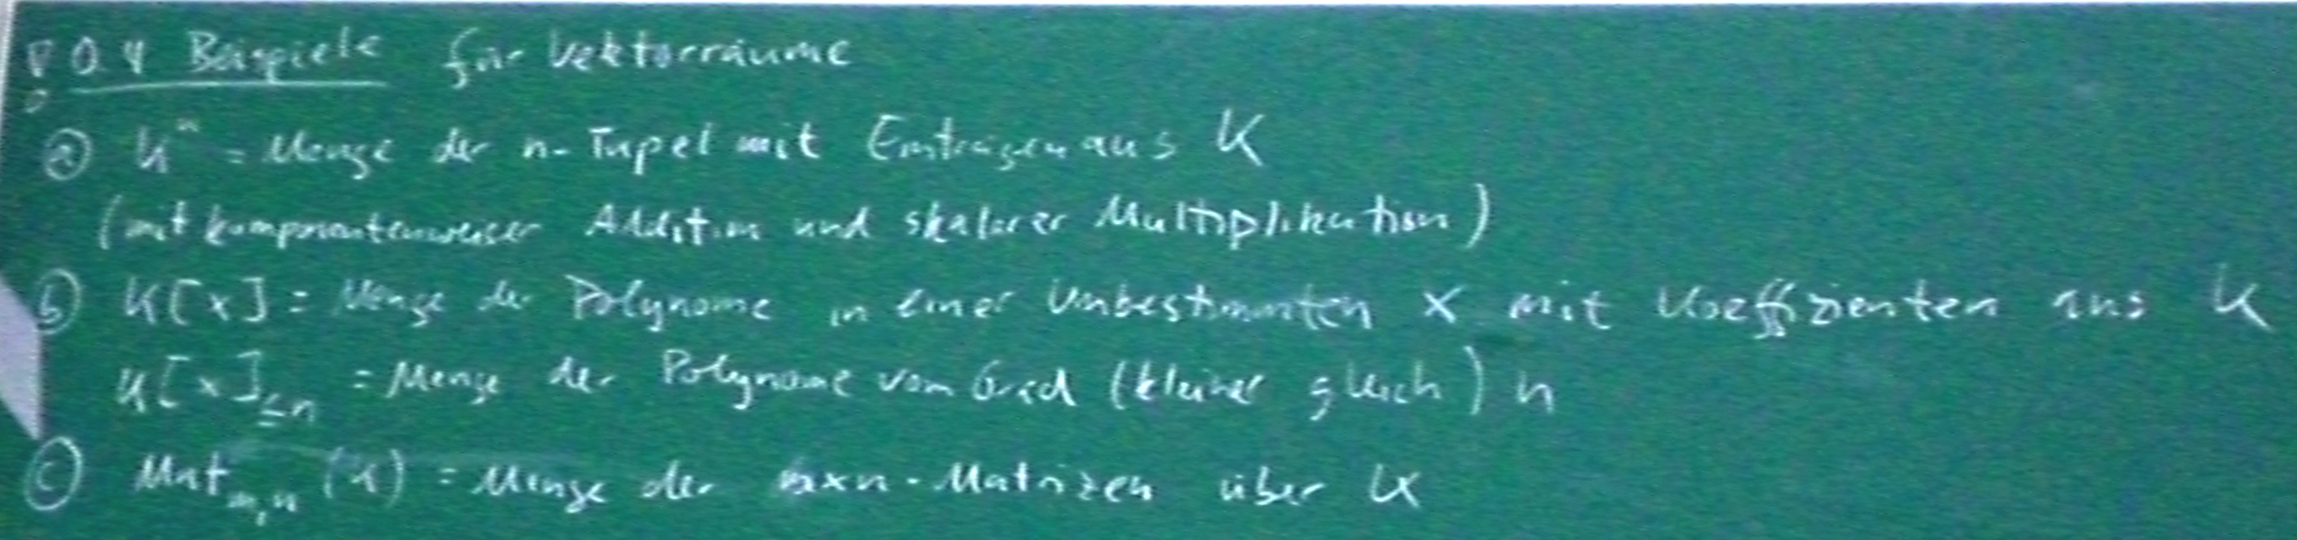 0.4 Beispiele für Vektorräume
ⓐ Kⁿ = Menge der n-Tupel mit Einträgen aus K
(mit komponentenweiser Addition und skalarer Multiplikation)
ⓑ K[x] = Menge der Polynome in einer Unbestimmten x mit Koeffizienten aus K
K[x]≤n = Menge der Polynome vom Grad (kleiner gleich) n
ⓒ Mat m,n (K) = Menge der m×n-Matrizen über K